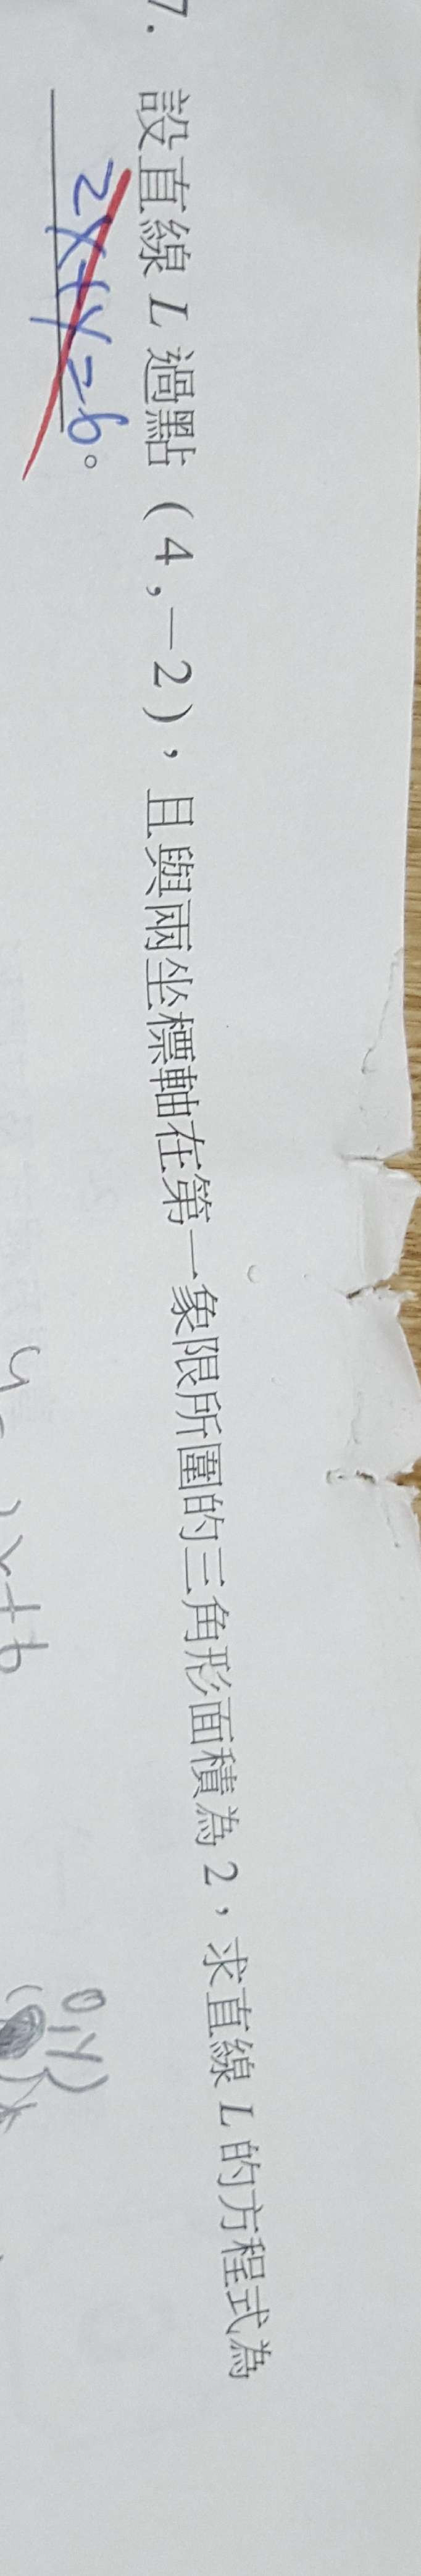 7. 設直線 L 過點 (4,-2),且與兩坐標軸在第一象限所圍的三角形面積為 2,求直線 L 的方程式為
2x+y=6。
0,y)